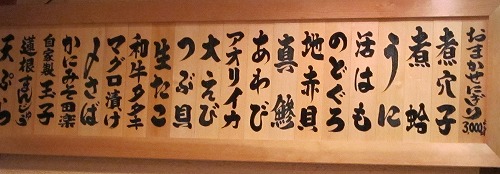 おまかせにぎり 3000
煮穴子
煮蛤
うに
活はも
のどぐろ
地赤貝
真鯵
あわび
アオリイカ
大えび
つぶ貝
生たこ
和牛タタキ
マグロ漬け
〆さば
かにみそ田楽
自家製 玉子
天ぷら